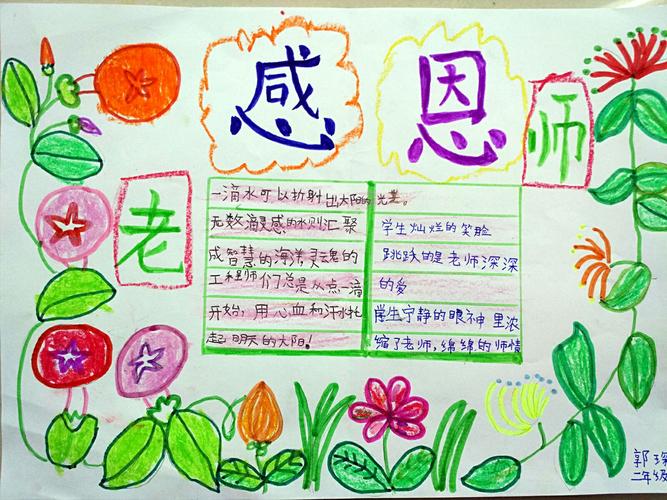 感恩
老师
一滴水可以折射出太阳的光辉。
无数滴灵感的水则汇聚
成智慧的海洋，灵魂的
工程师们总是从点一滴
开始，用心血和汗水托
起明天的太阳！
学生灿烂的笑脸
跳跃的是老师深深
的爱
学生宁静的眼神里浓
缩了老师，绵绵的师情
郭琛
二年级